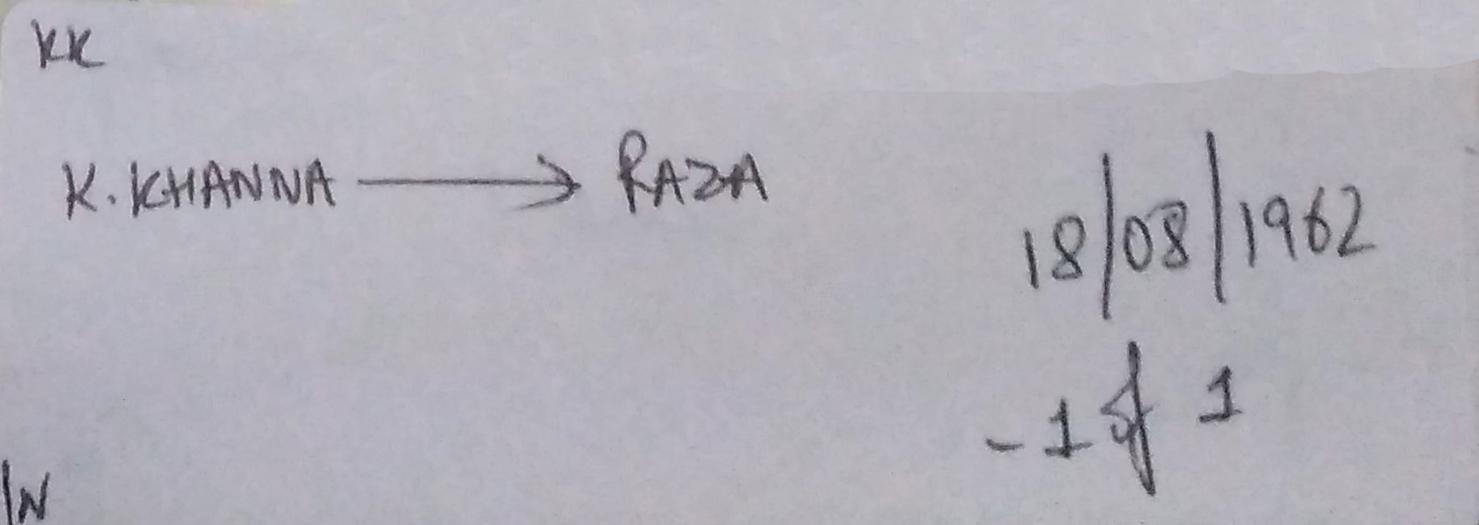 KK
K. KHANNA → RAZA
18/08/1962
- 1 of 1
IN